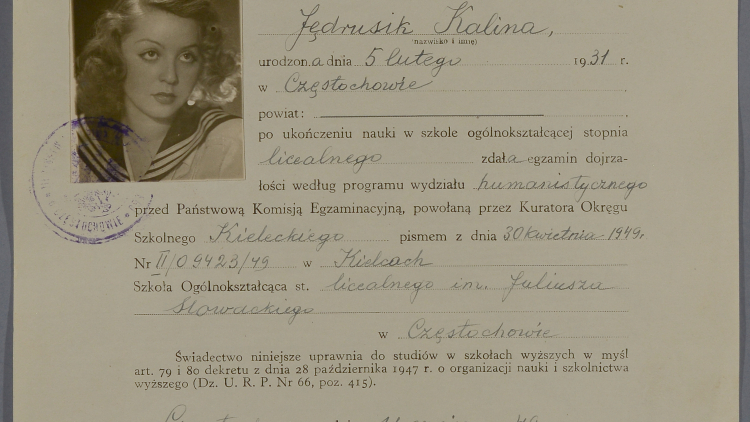 Jędrusik Kalina,
(nazwisko i imię)
urodzon.a dnia 5 lutego 1931 r.
w Częstochowie
powiat:
po ukończeniu nauki w szkole ogólnokształcącej stopnia
licealnego zdała egzamin dojrza-
łości według programu wydziału humanistycznego
przed Państwową Komisją Egzaminacyjną, powołaną przez Kuratora Okręgu
Szkolnego Kieleckiego pismem z dnia 30 kwietnia 1949r.
Nr II/09423/49 w Kielcach
Szkoła Ogólnokształcąca st. licealnego im. Juliusza
Słowackiego
w Częstochowie
Świadectwo niniejsze uprawnia do studiów w szkołach wyższych w myśl
art. 79 i 80 dekretu z dnia 28 października 1947 r. o organizacji nauki i szkolnictwa
wyższego (Dz. U. R. P. Nr 66, poz. 415).